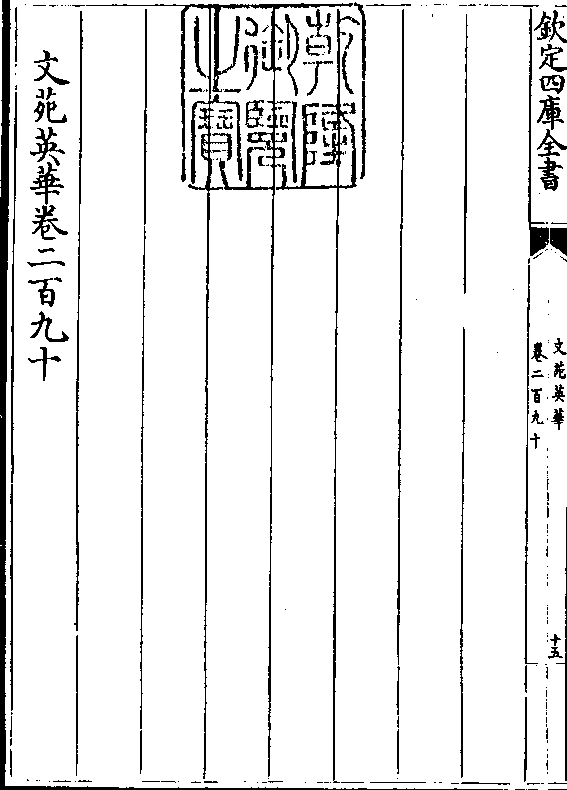 欽定四庫全書
文苑英華
卷二百九十
十五
乾隆御覽之寶
文苑英華卷二百九十